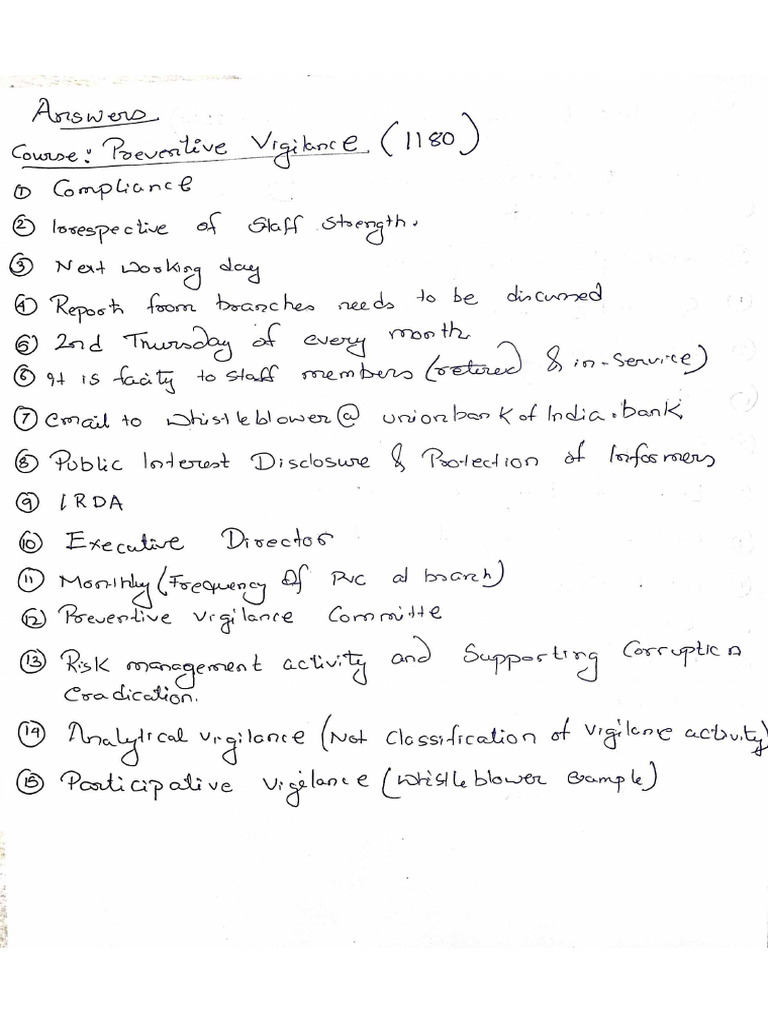 Answers
Course: Preventive Vigilance (1180)
① Compliance
② Irrespective of Staff Strength.
③ Next working day
④ Report from branches needs to be discussed
⑤ 2nd Thursday of every month
⑥ It is facity to staff members (retered & in-service)
⑦ Email to whistleblower@unionbankofIndia.bank
⑧ Public Interest Disclosure & Protection of Informers
⑨ IRDA
⑩ Executive Director
⑪ Monthly (Frequency of PVC at branch)
⑫ Preventive vigilance Committe
⑬ Risk management activity and Supporting Corruption
Eradication.
⑭ Analytical vigilance (Not Classification of vigilance activity)
⑮ Participative vigilance (Whistleblower Example)